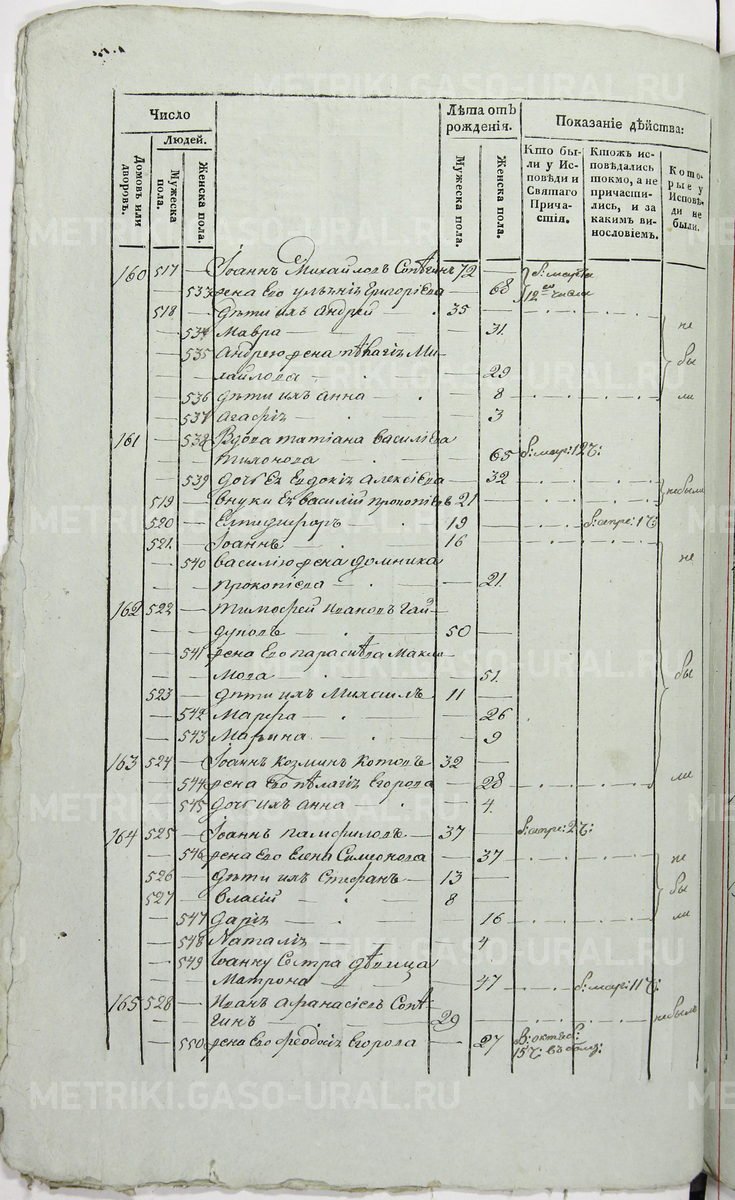 Число
Людей.
Домовъ или дворовъ.
Мужеска пола.
Женска пола.
Лѣта отъ рожденія.
Мужеска пола.
Женска пола.
Показаніе дѣйства:
Кто были у Исповѣди и Святаго Причастія.
Ктожъ исповѣдались токмо, а не причастились, и за какимъ винословіемъ.
Которые у Исповѣди не были.
160 517 — Іоаннъ Михайловъ 72 —
— 533 жена Его Григорієва — 68 12 числа
— 518 — дѣти ихъ Андрей — 35 —
— 534 Мавра — 31. не
— 535 Андрею жена Пелагіѣ Ми- бы
хайлова — 29
— 536 дѣти ихъ Анна — 8 ли
— 537 Агафіѣ — 3
161 — 538 Вдова Татіана Василіева
Тихонова — 65 мар: 12
— 539 дочь Ея Евдокіѣ Алексіева — 32
519 — внуки Ея Василій Прокопіевъ 21 небыли
520 — 19 — апре: 17
521. — Іоаннъ — 16 —
— 540 Василію жена Домника не
Прокопіева — 21.
162 522 — Тимофей Ивановъ Гай-
дуковъ — 50 —
— 541 жена Его Параскева Макси-
мова — 51. бы
523 — дѣти ихъ Михаилъ — 11 —
— 542 Марфа — 26
— 543 Марьина — 9
163 524 — Іоаннъ Козминъ Котовъ 32 —
— 544 жена Его Пелагіѣ Егорова — 28 ли
— 545 дочь ихъ Анна — 4.
164 525 — Іоаннъ Памфиловъ — 37 — апре: 2
— 546 жена Его Елена Симеонова — 37 не
526 — дѣти ихъ Стефанъ — 13 —
527 — Власій — 8 — бы
— 547 Даріѣ — 16 ли
— 548 Наталіѣ — 4
— 549 Іоанну сестра дѣвица
Матрона — 47 мар: 11
165 528 — Иванъ Афанасіевъ
гинъ — 29 — небылъ
— 550 жена Его Феодосіѣ Егорова — 27 октяб:
15
METRIKI.GASO-URAL.RU